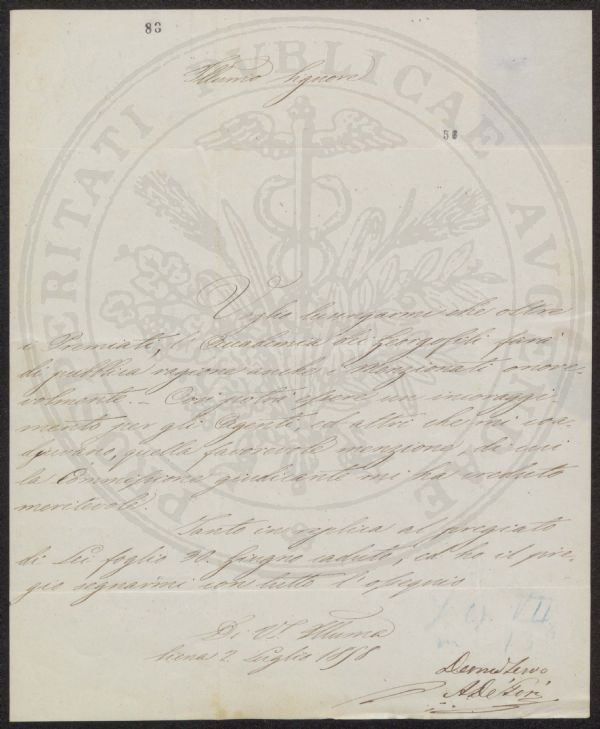 88
Illumo Signore
56
Voglio lusingarmi che oltre
i Premiati, l'Accademia dei Georgofili farà
di pubblica ragione anche i Menzionati onore-
volmente. – Così potrà essere un incoraggi-
mento per gli Agenti, ed altri che mi coa-
diuvano, quella favorevole menzione, di cui
la Commissione giudicante mi ha creduto
meritevole.
Tanto in replica al pregiato
di Lei foglio 30. Giugno caduto, ed ho il pre-
gio segnarmi con tutto l'ossequio
Di V.S. Illuma
Siena 2 Luglio 1858
Devmo Servo
PROSPERITATI PUBLICAE AUGENDAE